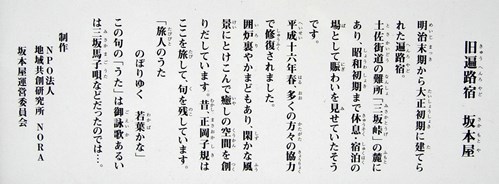 旧遍路宿　坂本屋
明治末期から大正初期に建てら
れた遍路宿。
土佐街道の難所「三坂峠」の麓に
あり、昭和初期まで休息・宿泊の
場として賑わいを見せていたそう
です。
平成十六年春、多くの方々の協力
で修復されました。
囲炉裏やかまどもあり、閑かな風
景にとけこんで癒しの空間を創
りだしています。昔、正岡子規は
ここを旅して、句を残しています。
「旅人のうた
のぼりゆく　若葉かな」
この句の「うた」は御詠歌あるい
は三坂馬子唄などだったのでは…。
制作
NPO法人
地域共創研究所　NORA
坂本屋運営委員会